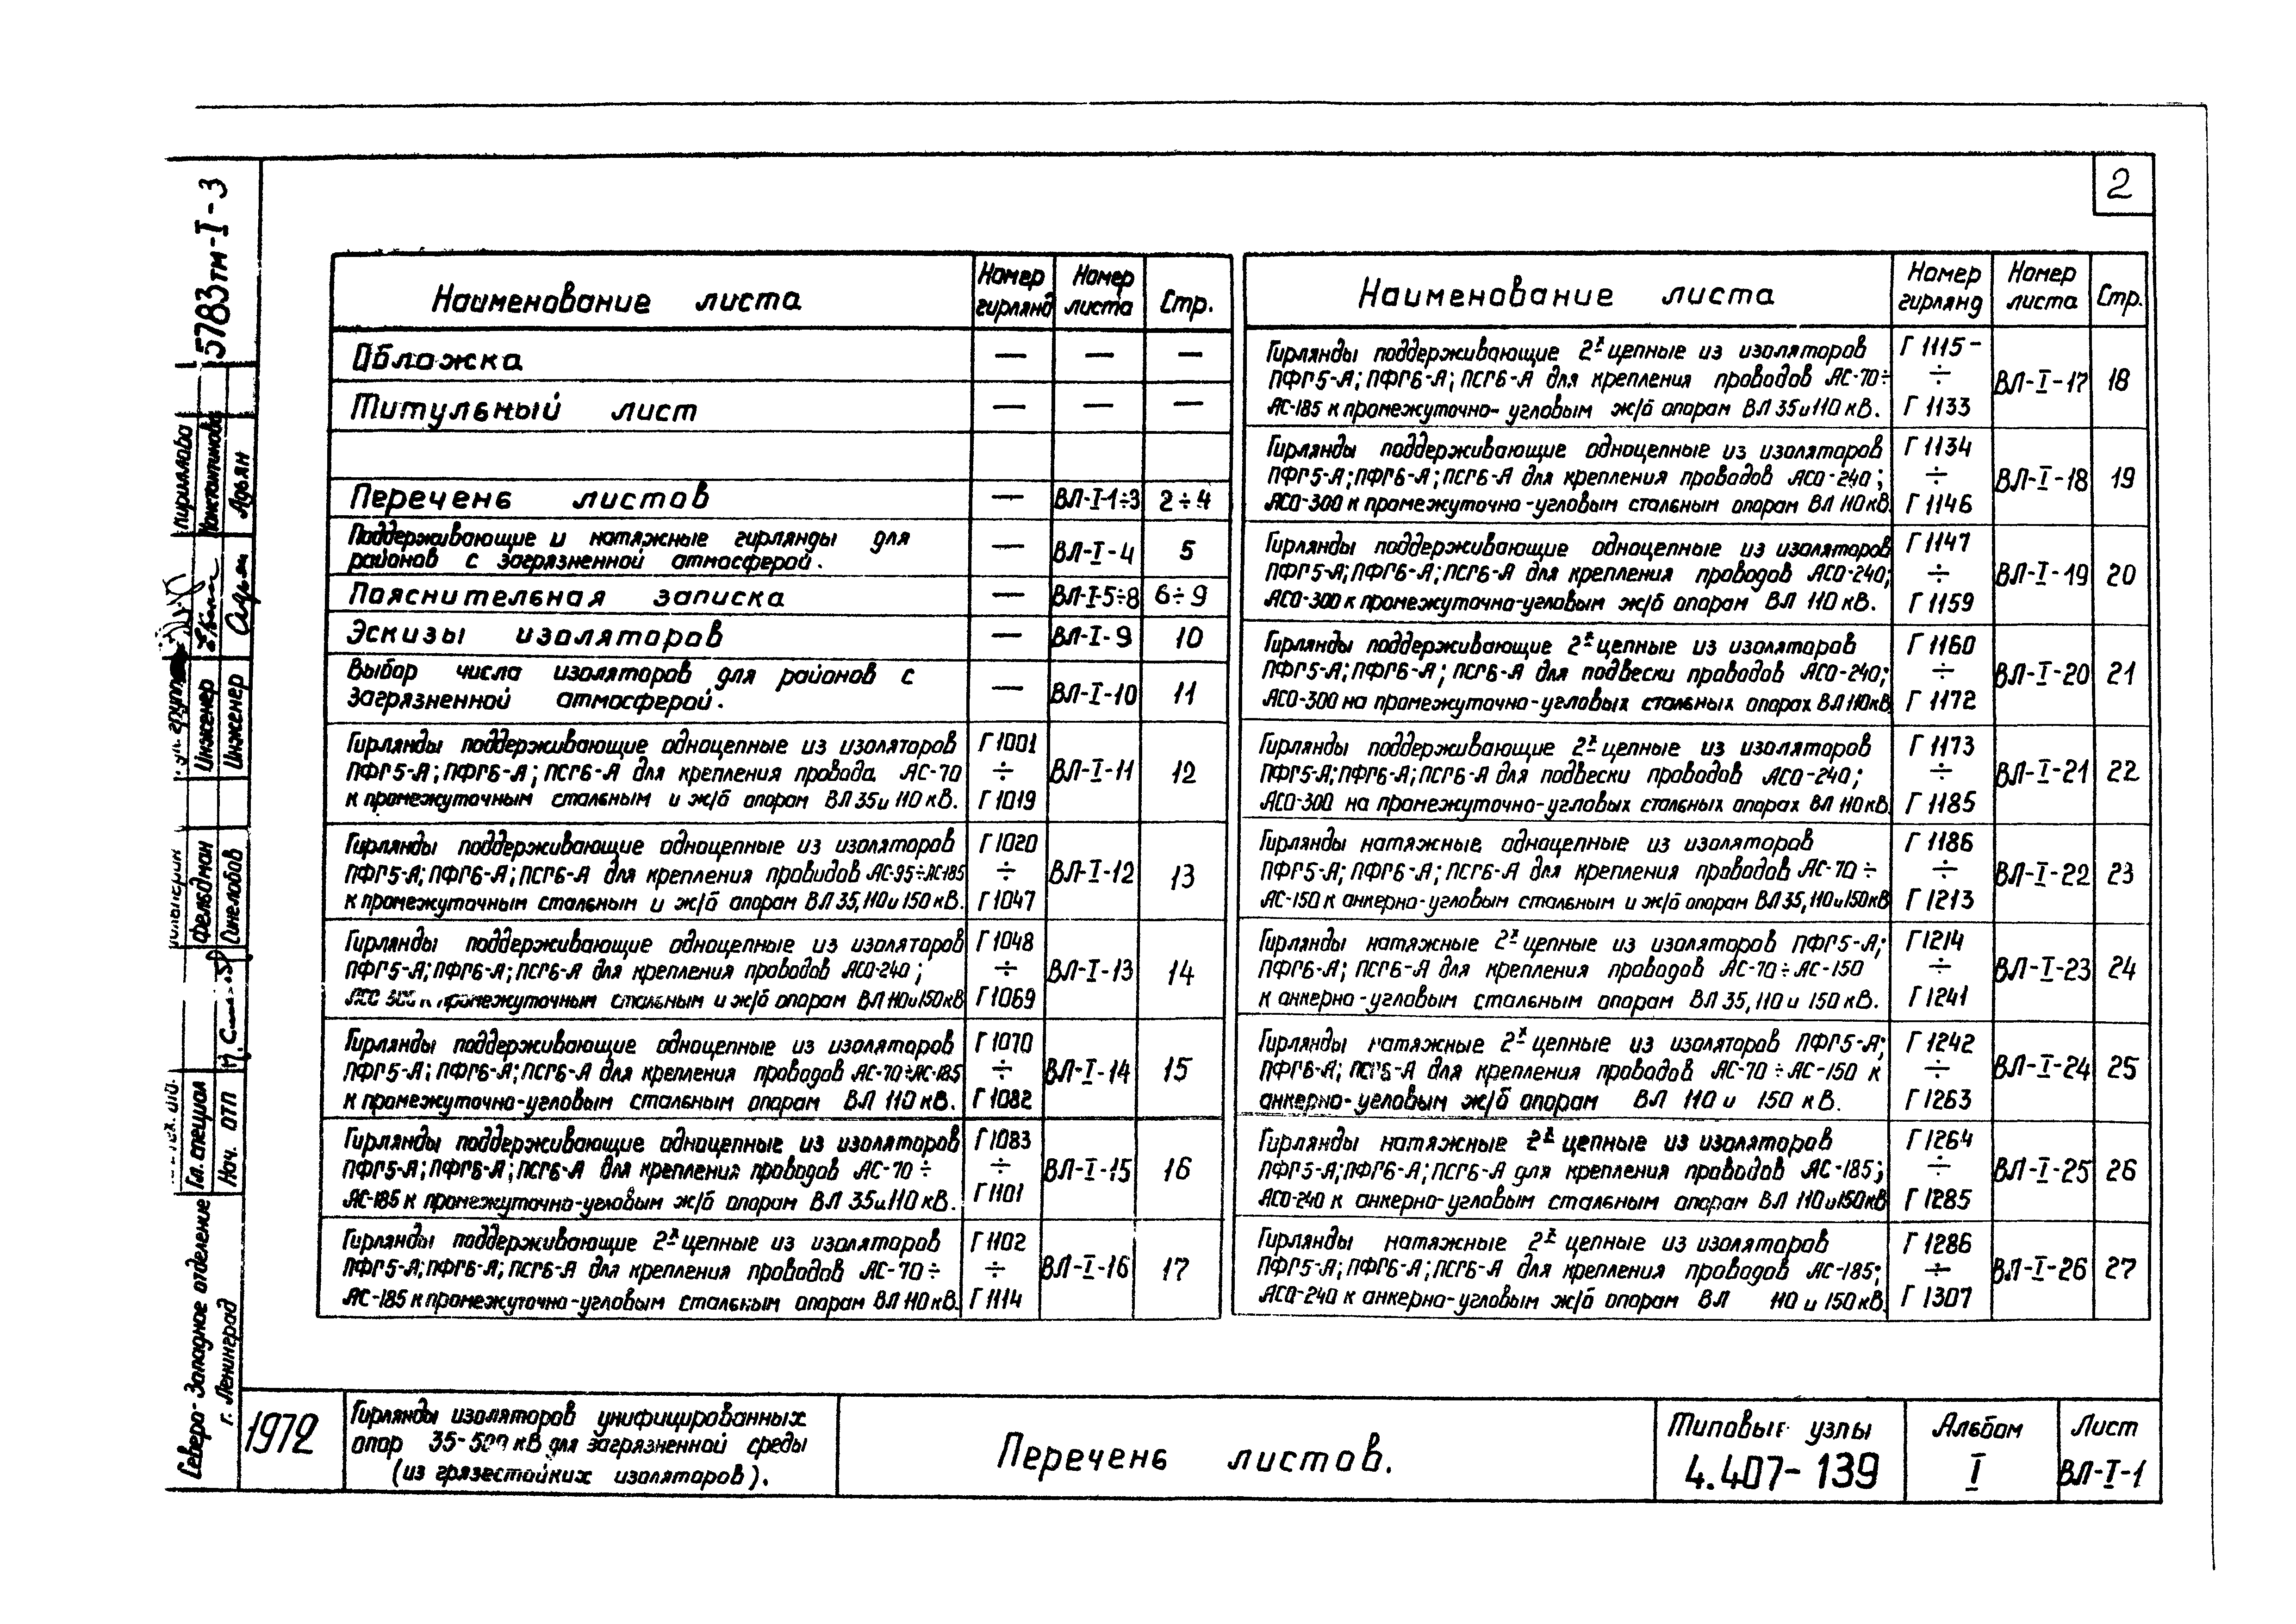 2
5783тм-I-3
Наименование листа
Номер гирлянд
Номер листа
Стр.
Обложка — — —
Титульный лист — — —
Перечень листов — ВЛ-I-1÷3 2÷4
Поддерживающие и натяжные гирлянды для
районов с загрязненной атмосферой. — ВЛ-I-4 5
Пояснительная записка — ВЛ-I-5÷8 6÷9
Эскизы изоляторов — ВЛ-I-9 10
Выбор числа изоляторов для районов с
загрязненной атмосферой. — ВЛ-I-10 11
Гирлянды поддерживающие одноцепные из изоляторов Г1001
ПФГ5-А; ПФГ6-А; ПСГ6-А для крепления провода АС-70 ÷ ВЛ-I-11 12
к промежуточным стальным и ж/б опорам ВЛ 35 и 110 кВ. Г1019
Гирлянды поддерживающие одноцепные из изоляторов Г1020
ПФГ5-А; ПФГ6-А; ПСГ6-А для крепления проводов АС-95÷АС-185 ÷ ВЛ-I-12 13
к промежуточным стальным и ж/б опорам ВЛ 35, 110 и 150 кВ. Г1047
Гирлянды поддерживающие одноцепные из изоляторов Г1048
ПФГ5-А; ПФГ6-А; ПСГ6-А для крепления проводов АСО-240; ÷ ВЛ-I-13 14
АСО-300 к промежуточным стальным и ж/б опорам ВЛ 110 и 150 кВ Г1069
Гирлянды поддерживающие одноцепные из изоляторов Г1070
ПФГ5-А; ПФГ6-А; ПСГ6-А для крепления проводов АС-70÷АС-185 ÷ ВЛ-I-14 15
к промежуточно-угловым стальным опорам ВЛ 110 кВ. Г1082
Гирлянды поддерживающие одноцепные из изоляторов Г1083
ПФГ5-А; ПФГ6-А; ПСГ6-А для крепления проводов АС-70÷ ÷ ВЛ-I-15 16
АС-185 к промежуточно-угловым ж/б опорам ВЛ 35 и 110 кВ. Г1101
Гирлянды поддерживающие 2х цепные из изоляторов Г1102
ПФГ5-А; ПФГ6-А; ПСГ6-А для крепления проводов АС-70÷ ÷ ВЛ-I-16 17
АС-185 к промежуточно-угловым стальным опорам ВЛ 110 кВ. Г1114
Наименование листа
Номер гирлянд
Номер листа
Стр.
Гирлянды поддерживающие 2х цепные из изоляторов Г1115-
ПФГ5-А; ПФГ6-А; ПСГ6-А для крепления проводов АС-70÷ ÷ ВЛ-I-17 18
АС-185 к промежуточно-угловым ж/б опорам ВЛ 35 и 110 кВ. Г1133
Гирлянды поддерживающие одноцепные из изоляторов Г1134
ПФГ5-А; ПФГ6-А; ПСГ6-А для крепления проводов АСО-240; ÷ ВЛ-I-18 19
АСО-300 к промежуточно-угловым стальным опорам ВЛ 110 кВ Г1146
Гирлянды поддерживающие одноцепные из изоляторов Г1147
ПФГ5-А; ПФГ6-А; ПСГ6-А для крепления проводов АСО-240; ÷ ВЛ-I-19 20
АСО-300 к промежуточно-угловым ж/б опорам ВЛ 110 кВ. Г1159
Гирлянды поддерживающие 2х цепные из изоляторов Г1160
ПФГ5-А; ПФГ6-А; ПСГ6-А для подвески проводов АСО-240; ÷ ВЛ-I-20 21
АСО-300 на промежуточно-угловых стальных опорах ВЛ 110 кВ Г1172
Гирлянды поддерживающие 2х цепные из изоляторов Г1173
ПФГ5-А; ПФГ6-А; ПСГ6-А для подвески проводов АСО-240; ÷ ВЛ-I-21 22
АСО-300 на промежуточно-угловых стальных опорах ВЛ 110 кВ. Г1185
Гирлянды натяжные одноцепные из изоляторов Г1186
ПФГ5-А; ПФГ6-А; ПСГ6-А для крепления проводов АС-70÷ ÷ ВЛ-I-22 23
АС-150 к анкерно-угловым стальным и ж/б опорам ВЛ 35, 110 и 150 кВ Г1213
Гирлянды натяжные 2х цепные из изоляторов ПФГ5-А; Г1214
ПФГ6-А; ПСГ6-А для крепления проводов АС-70÷АС-150 ÷ ВЛ-I-23 24
к анкерно-угловым стальным опорам ВЛ 35, 110 и 150 кВ. Г1241
Гирлянды натяжные 2х цепные из изоляторов ПФГ5-А; Г1242
ПФГ6-А; ПСГ6-А для крепления проводов АС-70÷АС-150 к ÷ ВЛ-I-24 25
анкерно-угловым ж/б опорам ВЛ 110 и 150 кВ. Г1263
Гирлянды натяжные 2х цепные из изоляторов Г1264
ПФГ5-А; ПФГ6-А; ПСГ6-А для крепления проводов АС-185; ÷ ВЛ-I-25 26
АСО-240 к анкерно-угловым стальным опорам ВЛ 110 и 150 кВ Г1285
Гирлянды натяжные 2х цепные из изоляторов Г1286
ПФГ5-А; ПФГ6-А; ПСГ6-А для крепления проводов АС-185; ÷ ВЛ-I-26 27
АСО-240 к анкерно-угловым ж/б опорам ВЛ 110 и 150 кВ. Г1307
Кириллова
Константинова
Адьян
Инженер
Инженер
Фельдман
Синелобов
Гл. специал
Нач. ОТП
Северо-Западное отделение
г. Ленинград
1972
Гирлянды изоляторов унифицированных
опор 35-500 кВ для загрязненной среды
(из грязестойких изоляторов).
Перечень листов.
Типовые узлы
4.407-139
Альбом
I
Лист
ВЛ-I-1